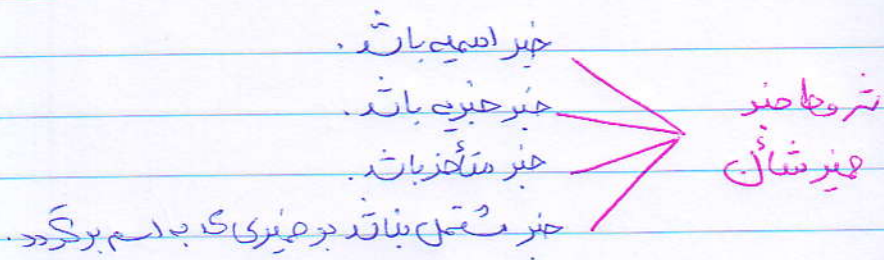 شروط خبر
ضمیر شأن
خبر اسمیه باشد.
خبر خبریه باشد.
خبر متأخر باشد.
خبر مشتمل نباشد بر ضمیری که به اسم برگردد.